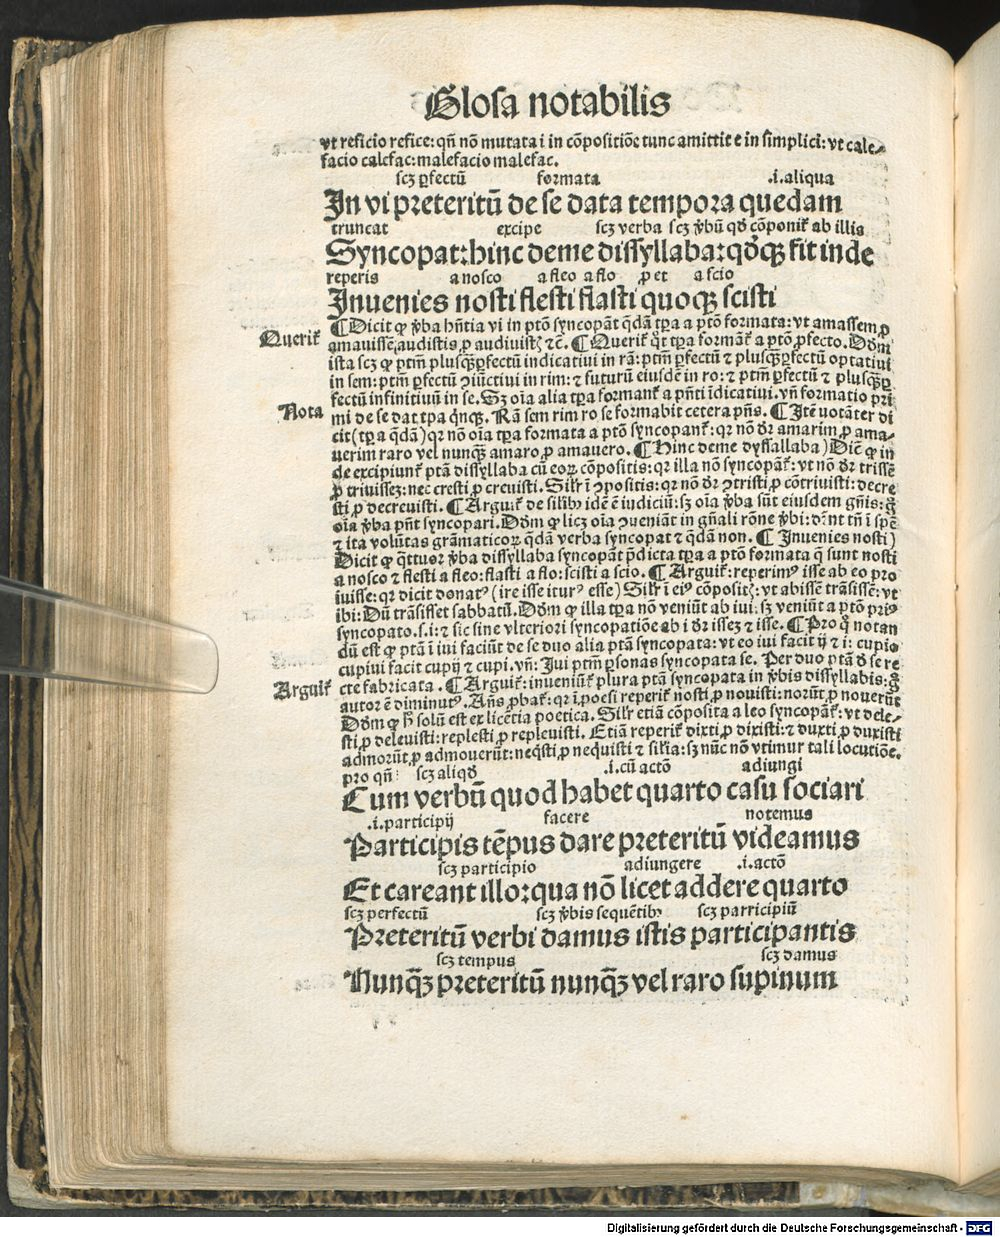 Glosa notabilis
vt reficio refice: qñ nõ mutata i in cõpositiõe tunc amittit e in simplici: vt cale⸗
facio calefac: malefacio malefac.
scꝫ ꝑfectũ formata .i. aliqua
In vi preteritũ de se data tempora quedam
truncat excipe scꝫ verba scꝫ ꝟbũ qď cõponit᷑ ab illis
Syncopat: hinc deme dissyllaba: qďqꝫ fit inde
reperis a nosco a fleo a flo ꝓ et a scio
Inuenies nosti flesti flasti quoqꝫ scisti
¶ Dicit ꝙ ꝟba hñtia vi in ptõ syncopãt q̃dã tꝑa a ptõ formata: vt amassem ꝓ
Querit᷑
amauissẽ, audistis ꝓ audiuistꝭ ⁊c̃. ¶ Querit᷑ q̊t tꝑa formant᷑ a ptõ ꝑfecto. Dõm
ista scꝫ ꝙ ptm plusqꝫꝑfectũ indicatiui in rã: ptm ꝑfectũ ⁊ plusqꝫꝑfectũ optatiui
in sem: ptm ꝑfectũ ꝯiũctiui in rim: ⁊ futurũ eiusdẽ in ro: ⁊ ptm ꝑfectũ ⁊ plusqꝫꝑ
fectũ infinitiuũ in se. Sꝫ oĩa alia tꝑa formant᷑ a pñti ĩdicatiui. vñ formatio pri
Nota
mi de se dat tꝑa q̃nqꝫ. Rã sem rim ro se formabit cetera pñs. ¶ Itẽ notãter di
cit (tꝑa q̃dã) qꝛ nõ oĩa tꝑa formata a ptõ syncopant᷑: qꝛ nõ dꝛ amarim ꝓ ama⸗
uerim raro vel nunqꝫ amaro ꝓ amauero. ¶ Hinc deme dyssallaba) Dic̃ ꝙ in
de excipiunt᷑ ptã dissyllaba cũ eoꝝ cõpositis: qꝛ illa nõ syncopãt᷑: vt nõ dꝛ trissẽ
ꝓ triuissem: nec cresti ꝓ creuisti. Silr̃ ĩ ꝯpositis: qꝛ nõ dꝛ ꝯtristi ꝓ cõtriuisti: decre
sti ꝓ decreuisti. ¶ Arguit᷑ de silibꝰ idẽ ẽ iudiciũ: sꝫ oĩa ꝟba sũt eiusdem gñis: g̊
oĩa ꝟba pñt syncopari. Dõm ꝙ licꝫ oĩa ꝯueniãt in gñali rõne ꝟbi: dr̃nt tñ ĩ spẽ
⁊ ita volũtas grãmaticoꝝ q̃dã verba syncopat ⁊ q̃dã non. ¶ Inuenies nosti)
Dicit ꝙ q̃ttuor ꝟba dissyllaba syncopãt p̃dicta tꝑa a ptõ formata q̃ sunt nosti
a nosco ⁊ flesti a fleo: flasti a flo: scisti a scio. ¶ Arguit᷑: reperimꝰ isse ab eo pro
iuisse: qꝛ dicit donatꝰ (ire isse iturꝰ esse) Silr̃ ĩ eiꝰ cõpositꝭ: vt abissẽ trãsissẽ: vt
ibi: Dũ trãsisset sabbatũ. Dõm ꝙ illa tꝑa nõ veniũt ab iui: sꝫ veniũt a ptõ priꝰ
syncopato. s. i: ⁊ sic sine vlteriori syncopatiõe ab i dꝛ issem ⁊ isse. ¶ Pro q̊ notan
dũ est ꝙ ptã ĩ iui faciũt de se duo alia ptã syncopata: vt eo iui facit ij ⁊ i: cupio
cupiui facit cupij ⁊ cupi. vñ: Iui ptm ꝑsonas syncopata se. Per duo ptã ď se re
Arguit᷑
cte fabricata. ¶ Arguit᷑: inueniũt᷑ plura ptã syncopata in ꝟbis dissyllabis: g̊
autor ẽ diminutꝰ. Añs ꝓbat᷑: qꝛ ĩ poesi reperit᷑ nosti ꝓ nouisti: norũt ꝓ nouerũt
Dõm ꝙ h̃ solũ est ex licẽtia poetica. Silr̃ etiã cõposita a leo syncopãt᷑: vt dele⸗
sti ꝓ deleuisti: replesti ꝓ repleuisti. Etiã reperit᷑ dixti ꝓ dixisti: ⁊ duxti ꝓ duxisti
admorũt ꝓ admouerũt: neq̃sti ꝓ nequisti ⁊ silĩa: sꝫ nũc nõ vtimur tali locutiõe.
pro qñ: scꝫ aliqď .i. cũ actõ adiungi
Cum verbũ quod habet quarto casu sociari
.i. participij facere notemus
Participis tẽpus dare preteritũ videamus
scꝫ participio adiungere .i. actõ
Et careant illo: qua nõ licet addere quarto
scꝫ perfectũ scꝫ ꝟbis sequẽtibꝰ scꝫ parricipiũ
Preteritũ verbi damus istis participantis
scꝫ tempus scꝫ damus
Nunqꝫ preteritũ nunqꝫ vel raro supinum
Digitalisierung gefördert durch die Deutsche Forschungsgemeinschaft - DFG